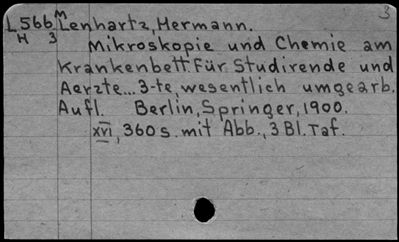 3
L566 M Lenhartz, Hermann.
H 3 Mikroskopie und Chemie am
Krankenbett. Für Studirende und
Aerzte... 3-te, wesentlich umgearb.
Aufl. Berlin, Springer, 1900.
XVI, 360 s. mit Abb., 3 Bl. Taf.